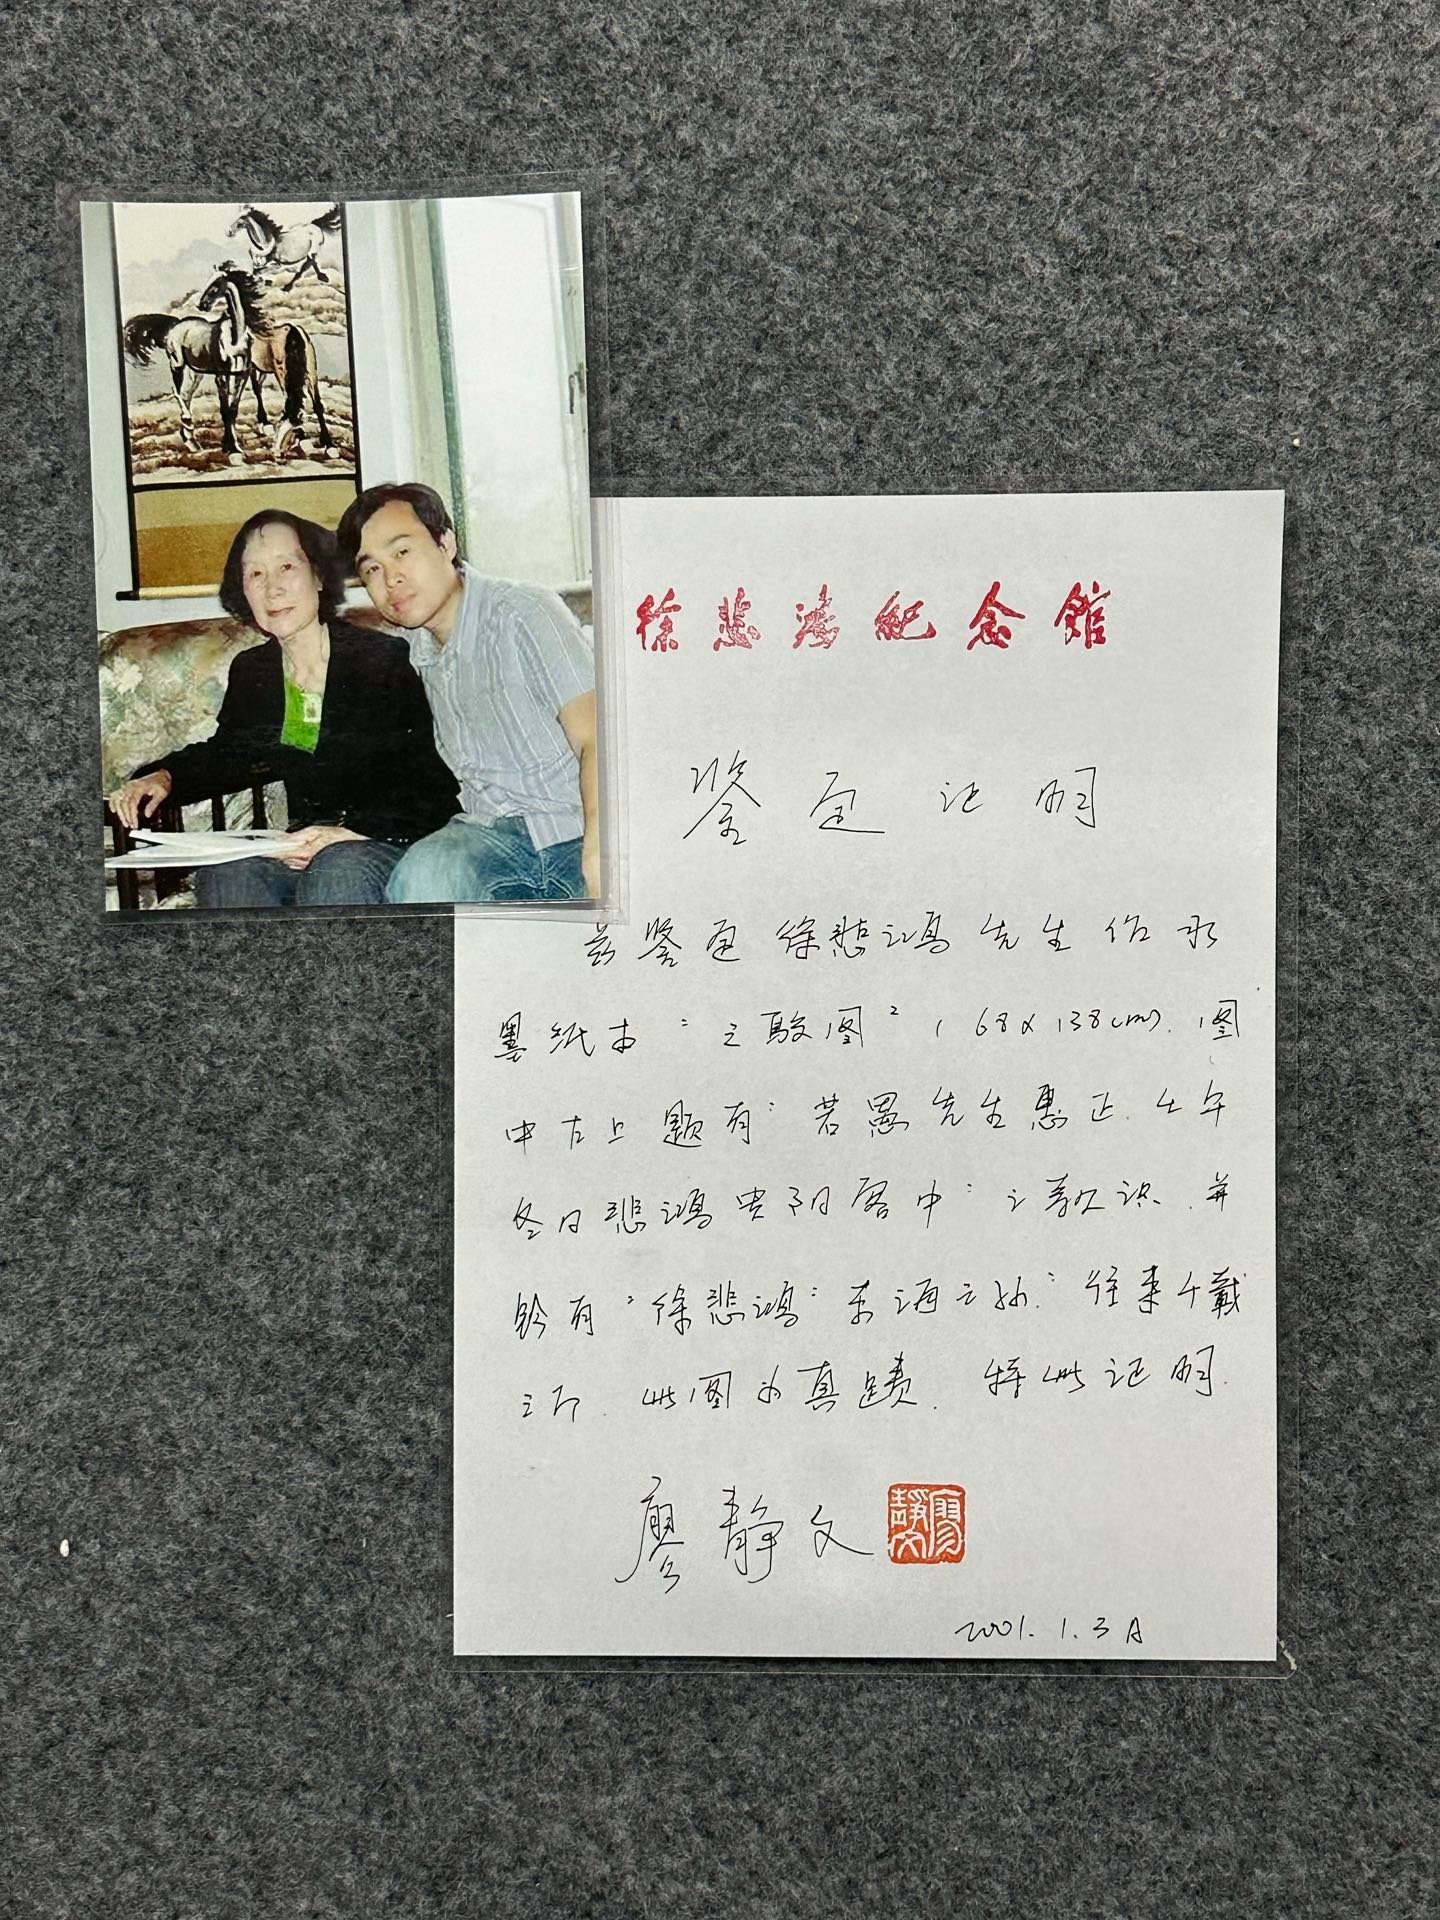 徐悲鸿纪念馆
鉴定证明
兹鉴定徐悲鸿先生作水
墨纸本"三骏图"(68×138cm).图
中右上题有"若愚先生惠正.壬午
冬日悲鸿贵阳客中"之款识.并
钤有"徐悲鸿""东海王孙""往来千载"
之印.此图为真蹟.特此证明.
廖静文
廖靜文
2001.1.3日